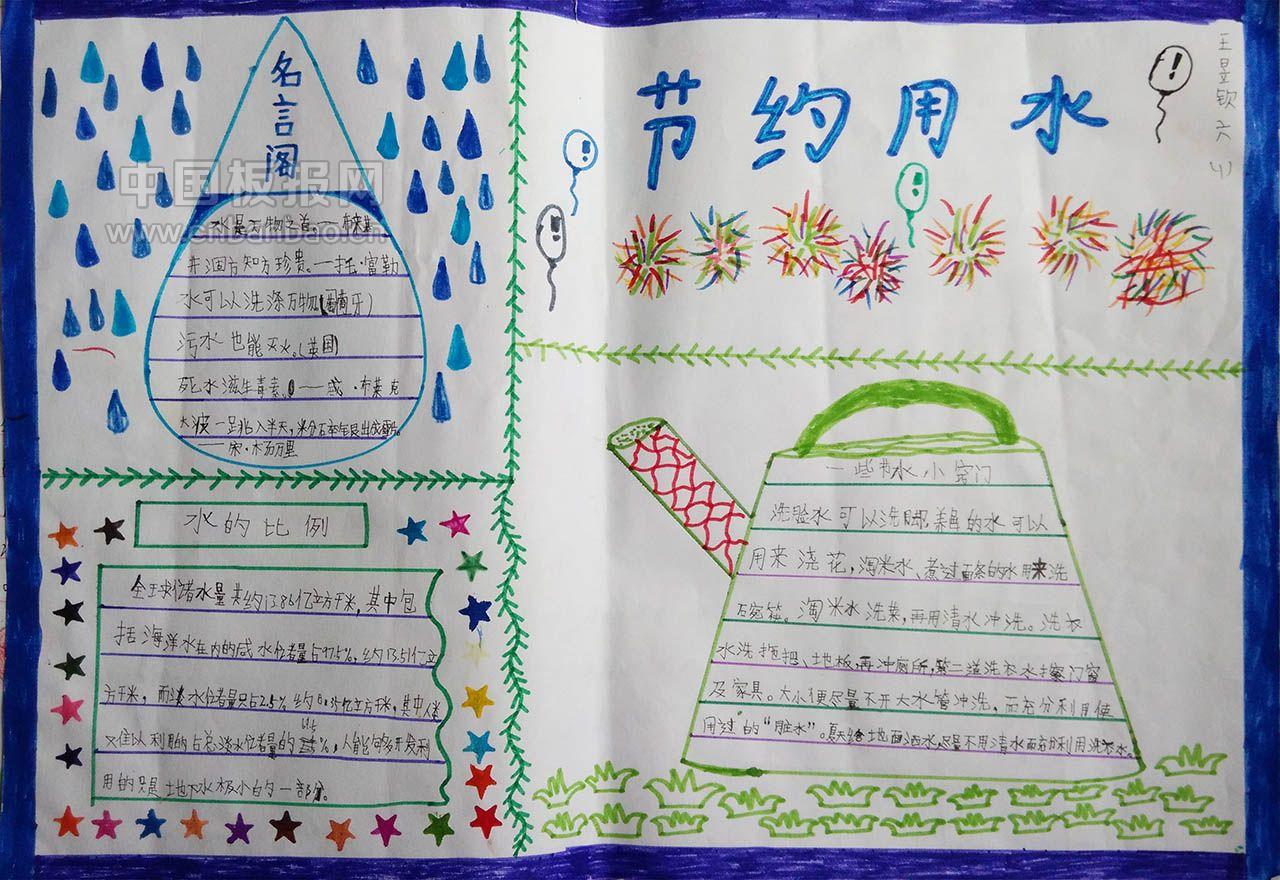 节约用水
王昱钦 六(4)
名言阁
中国板报网
www.cnbanbao.cn
水是万物之首。——布莱基
井涸方知方珍贵。——托·富勒
水可以洗涤万物(葡萄牙)
污水也能灭火。(英国)
死水滋生毒素。——威·布莱克
大波一跳入半天,
——宋·杨万里
水的比例
全球储水量共约13.86亿立方千米,其中包
括海洋水在内的咸水储量占97.5%,约13.51亿立
方千米,而淡水储量只占2.5%约0.35亿立方千米,其中人类
又难以利用的占总淡水储量的 %,人能够多开发利
用的只是地下水极小的一部分。
一些节水小窍门
洗脸水可以洗脚,养鱼的水可以
用来浇花,淘米水、煮过面条的水用来洗
碗筷。淘米水洗菜,再用清水冲洗。洗衣
水洗拖把、地板,再冲厕所,第二道洗衣水擦门窗
及家具。大小便尽量不开大水管冲洗,而充分利用使
用过的“脏水”。夏天给地面洒水,尽量不用清水而充分利用洗衣水。